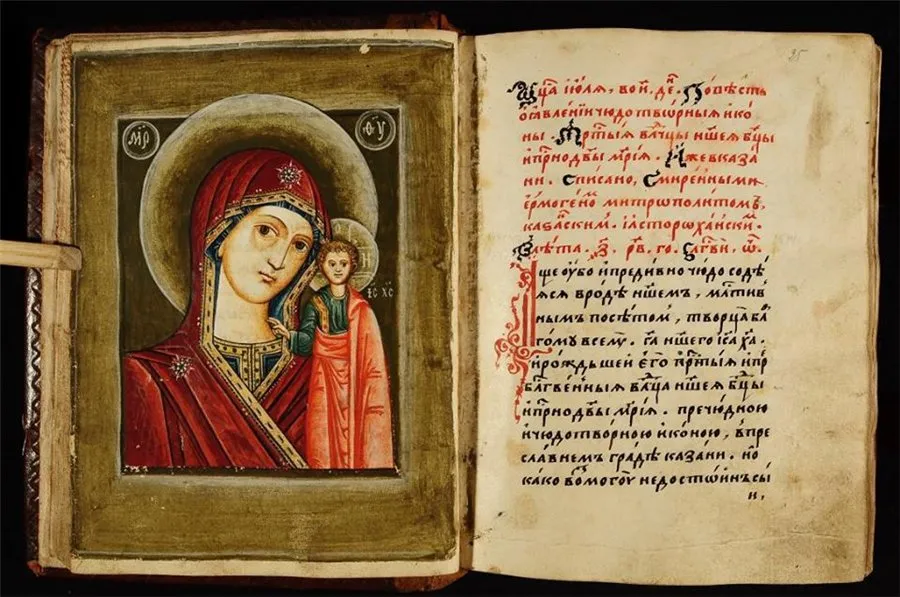 М҃Р
Ѳ҃У
І҃С Х҃С
35
мц҃а іюля, во и҃. де҃. Повѣсть
ѡ ꙗвленіи чюдотворныя ико
ны. Прⷭ҇тыя влⷣчцы нш҃ея бц҃ы
и приснодв҃ы мр҃ія. Иже в каза
ни. списано, смиренными
ермогено́мъ митрополитомъ,
каза́нскимъ. и асторохански.
в лѣта. ҂з҃. рв҃. го. блгⷭ҇ви, ѿ.
ще оубо и предивно чюдо содѣ
яся в родѣ нш҃емъ, млⷭ҇тив
нымъ посѣтом, творца бл҃
гому всемꙋ. га҃ нш҃его іса҃ ха҃.
и рождьшей его прⷭ҇тыя и пр
блг҃венныя влⷣчца нш҃ея бц҃ы
и приснодв҃ы мр҃ія. пречюдною
и чюдотворною иконою, в пре
славнемъ градѣ казани. но
како возмогоу недостоинъ сы
и,